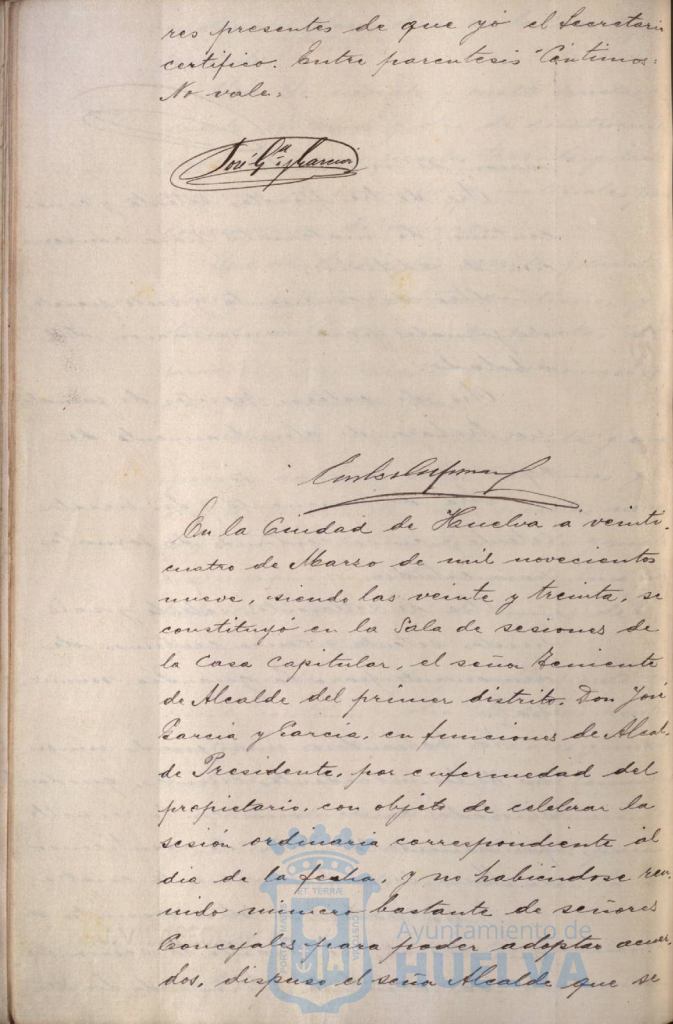 res presentes de que yó el Secretario
certifico. Entre parentesis "Céntimos"
No vale.
José G.ª y Garcia
En la Ciudad de Huelva á veinti-
cuatro de Marzo de mil novecientos
nueve, siendo las veinte y treinta, se
constituyó en la Sala de sesiones de
la Casa Capitular, el señor Teniente
de Alcalde del primer distrito, Don José
Garcia y Garcia, en funciones de Alcal-
de Presidente, por enfermedad del
propietario, con objeto de celebrar la
sesión ordinaria correspondiente al
dia de la fecha, y no habiéndose reu-
nido número bastante de señores
Concejales para poder adoptar acuer-
dos, dispuso el señor Alcalde que se
Ayuntamiento de
HUELVA